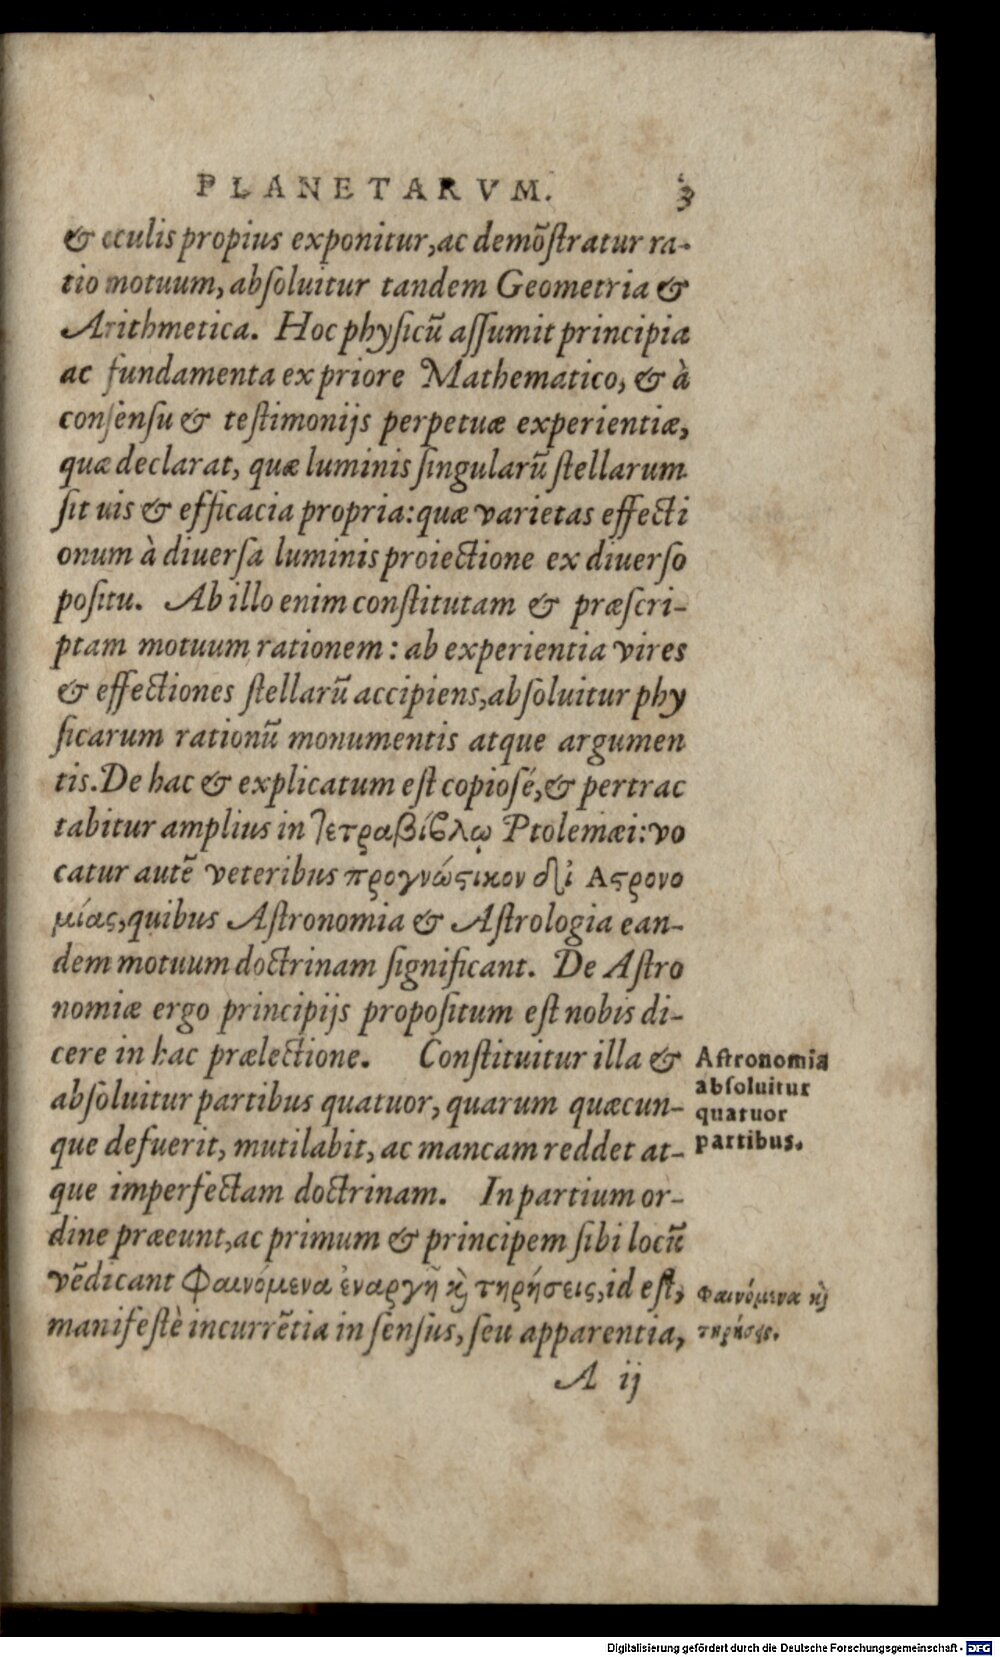 PLANETARVM. 3
& oculis propius exponitur, ac demõſtratur ra-
tio motuum, abſoluitur tandem Geometria &
Arithmetica. Hoc phyſicũ aſſumit principia
ac fundamenta ex priore Mathematico, & à
conſenſu & teſtimonijs perpetuæ experientiæ,
quæ declarat, quæ luminis ſingularũ ſtellarum
ſit uis & efficacia propria: quæ varietas effecti
onum à diuerſa luminis proiectione ex diuerſo
poſitu. Ab illo enim conſtitutam & præſcri-
ptam motuum rationem: ab experientia vires
& effectiones ſtellarũ accipiens, abſoluitur phy
ſicarum rationũ monumentis atque argumen
tis. De hac & explicatum eſt copioſé, & pertrac
tabitur amplius in Τετραβίβλῳ Ptolemæi: vo
catur autẽ veteribus προγνώςικον δἰ Αςρονο
μίας, quibus Aſtronomia & Aſtrologia ean-
dem motuum doctrinam ſignificant. De Aſtro
nomiæ ergo principijs propoſitum eſt nobis di-
cere in hac prælectione. Conſtituitur illa &
abſoluitur partibus quatuor, quarum quæcun-
que defuerit, mutilabit, ac mancam reddet at-
que imperfectam doctrinam. In partium or-
dine præeunt, ac primum & principem ſibi locũ
vẽdicant Φαινόμενα ἐναργῆ κὶ τηρήσεις, id eſt,
manifeſtè incurrẽtia in ſenſus, ſeu apparentia,
A ij
Aſtronomia
abſoluitur
quatuor
partibus.
Φαινόμενα κὶ
τηρήσεις.
Digitalisierung gefördert durch die Deutsche Forschungsgemeinschaft - DFG